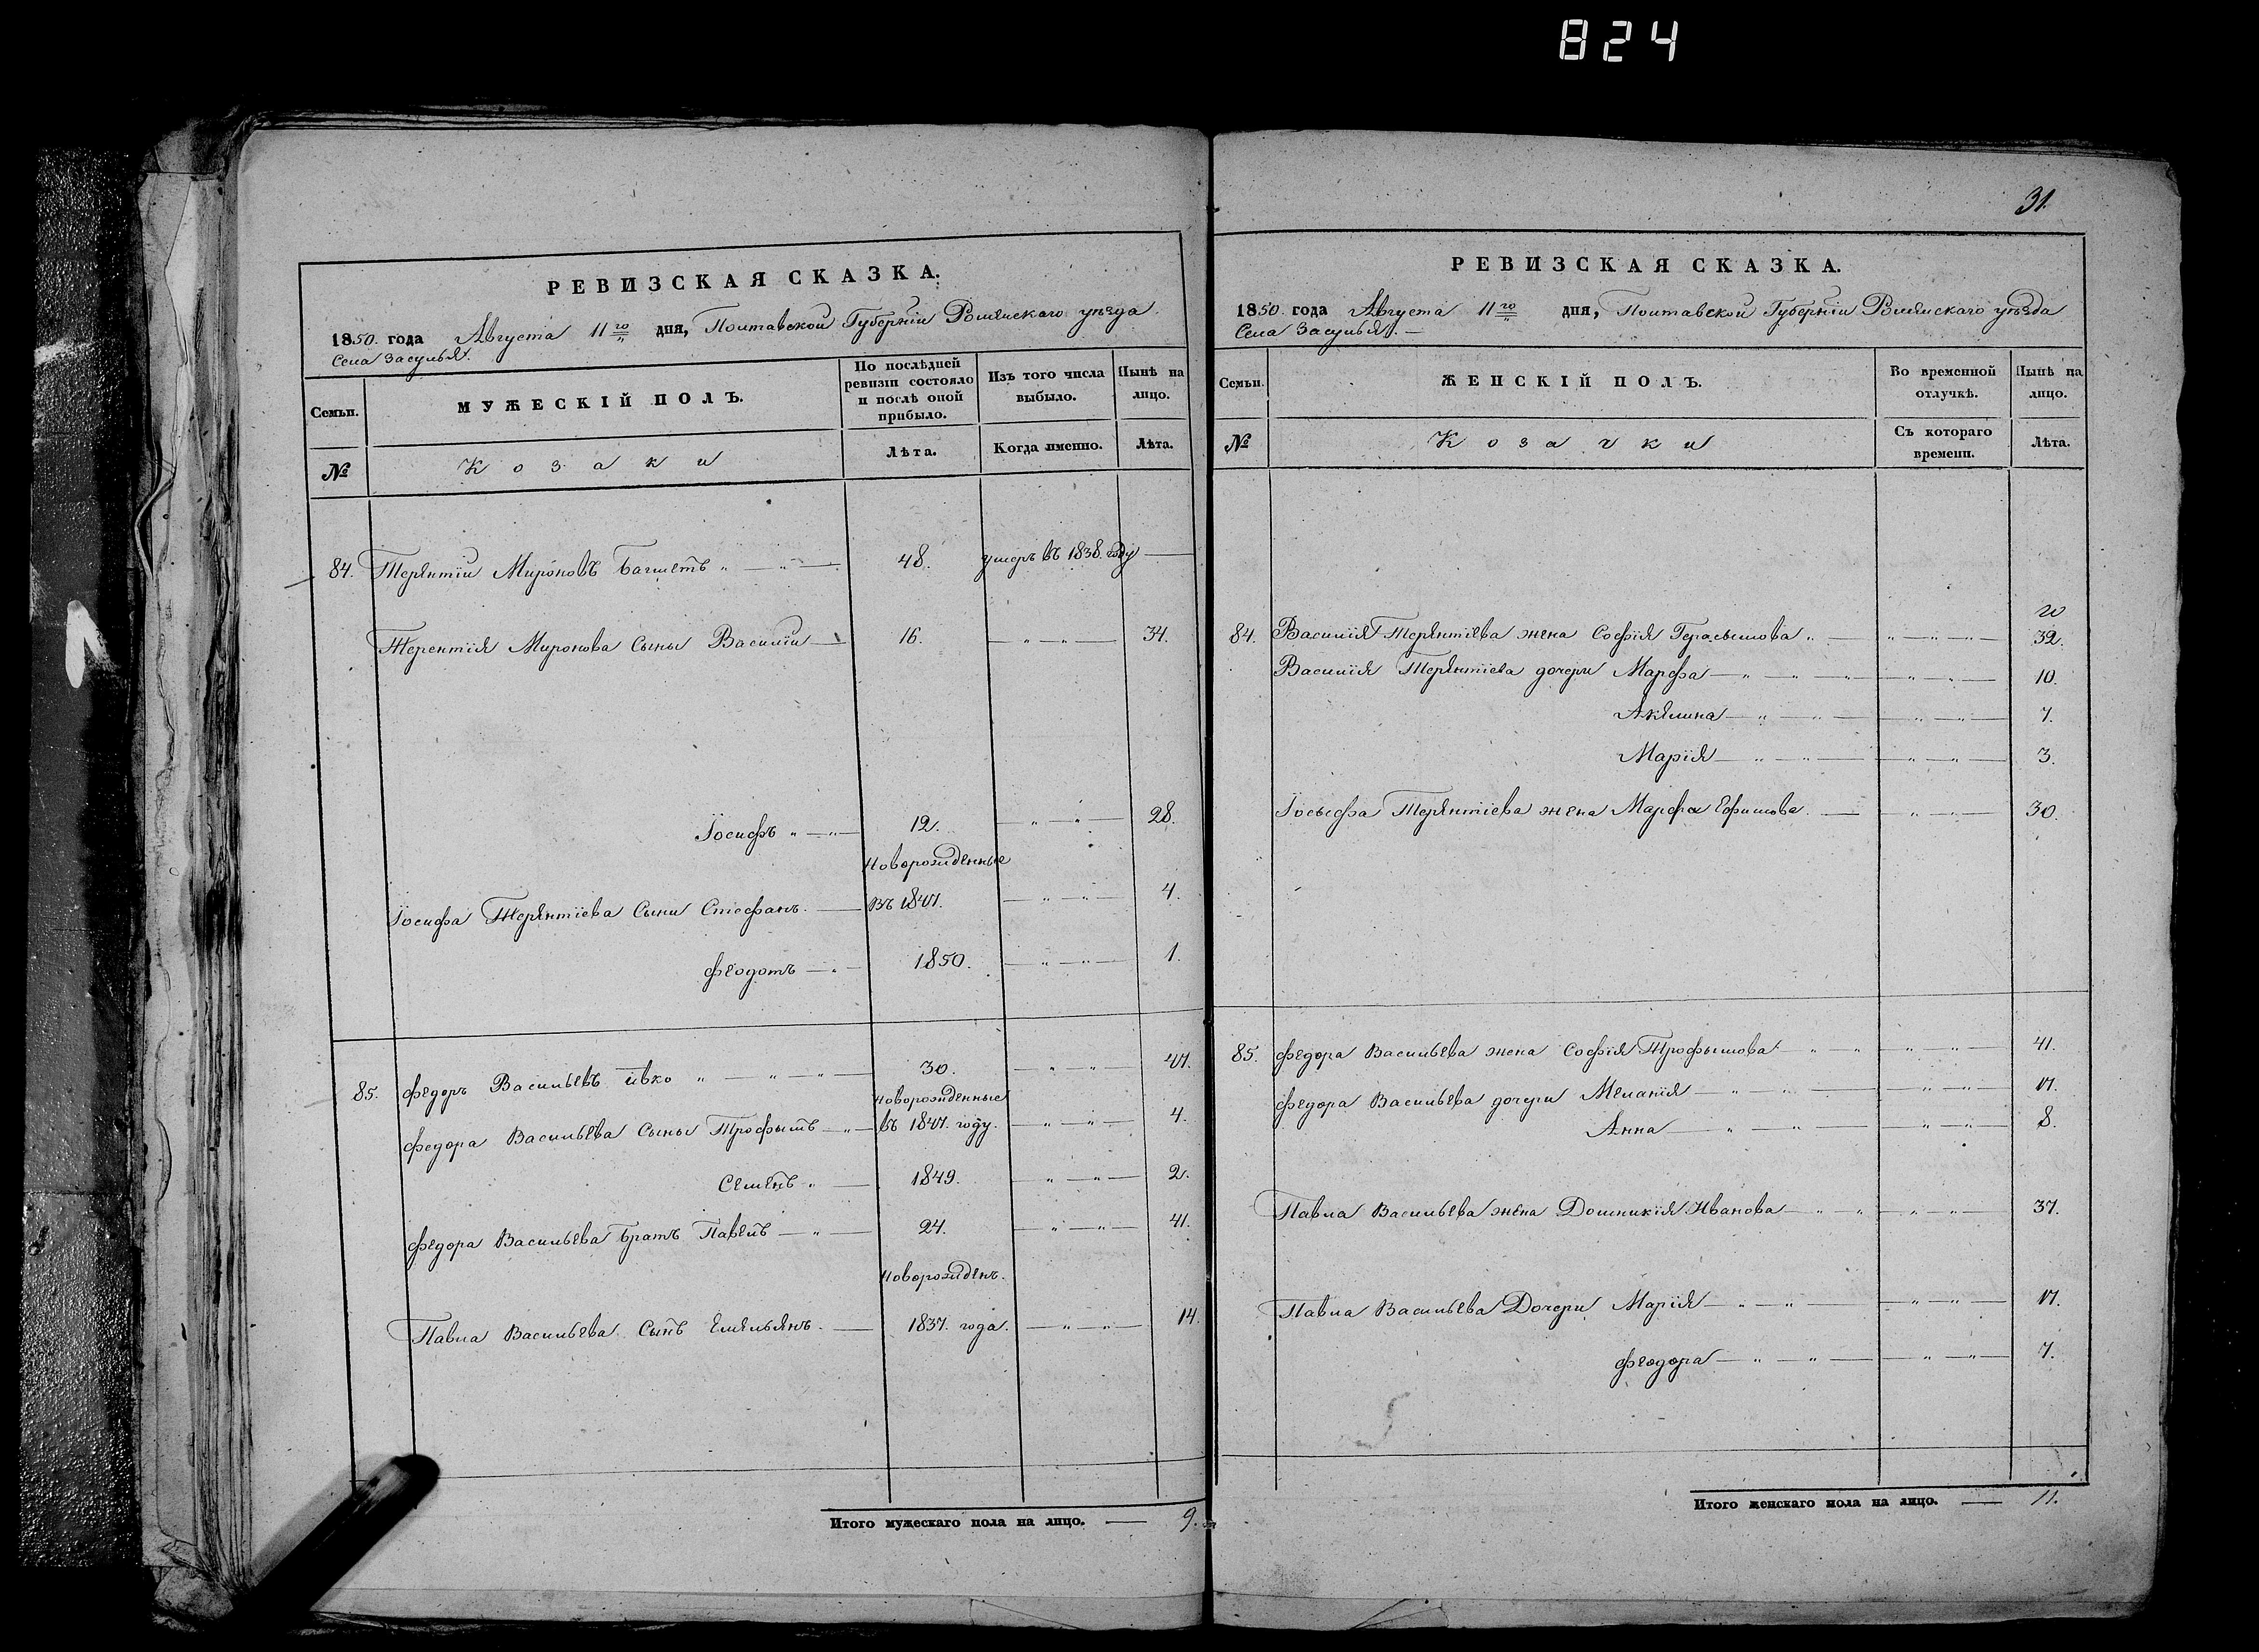 824
РЕВИЗСКАЯ СКАЗКА.
1850. года Августа 11го дня, Полтавской Губерніи Роменскаго уѣзда.
Села Засулья.
Семьи. МУЖЕСКІЙ ПОЛЪ. По послѣдней ревизіи состояло и послѣ оной прибыло. Изъ того числа выбыло. Нынѣ на лицо.
№ Козаки Лѣта. Когда именно. Лѣта.
84. Терентіи Мироновъ 48. умеръ въ 1838. году
Терентія Миронова Сыны Василіи 16. 34.
Іосифъ 12. 28.
Новорожденные
Іосифа Терентіева Сыни Стефанъ. въ 1847. 4.
Феодотъ 1850. 1.
85. Федоръ Васильевъ Ивко 30. 47.
Новорожденные
Федора Васильева Сыны Трофымъ въ 1847. году. 4.
Семенъ 1849. 2.
Федора Васильева Братъ Павелъ 24. 41.
Новорожденъ.
Павла Васильева Сынъ Емельянъ. 1837. года. 14.
Итого мужескаго пола на лицо. 9.
31.
РЕВИЗСКАЯ СКАЗКА.
1850. года Августа 11го дня, Полтавской Губерніи Роменскаго уѣзда
Села Засулья.
Семьи. ЖЕНСКІЙ ПОЛЪ. Во временной отлучкѣ. Нынѣ на лицо.
№ Козачки Съ котораго времени. Лѣта.
84. Василія Терентіева жена Софія Герасымова 32.
Василія Терентіева дочери Марфа 10.
Акелина 7.
Марія 3.
Іосыфа Терентіева жена Марфа Ефимова. 30.
85. Федора Васильева жена Софія Трофымова 41.
Федора Васильева дочери Меланія 17.
Анна 8.
Павла Васильева жена Домникія Иванова 37.
Павла Васильева Дочери Марія 17.
Феодора 7.
Итого женскаго пола на лицо. 11.